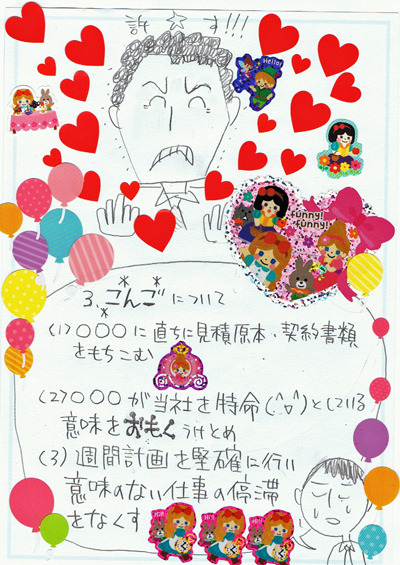 許☆す!!!
Hello!
funny!
funny!
3.こんごについて
(1)○○○に直ちに見積原本・契約書類
をもちこむ
(2)○○○が当社を特命(^▽^)としている
意味をおもくうけとめ
(3)週間計画を堅確に行い
意味のない仕事の停滞
をなくす